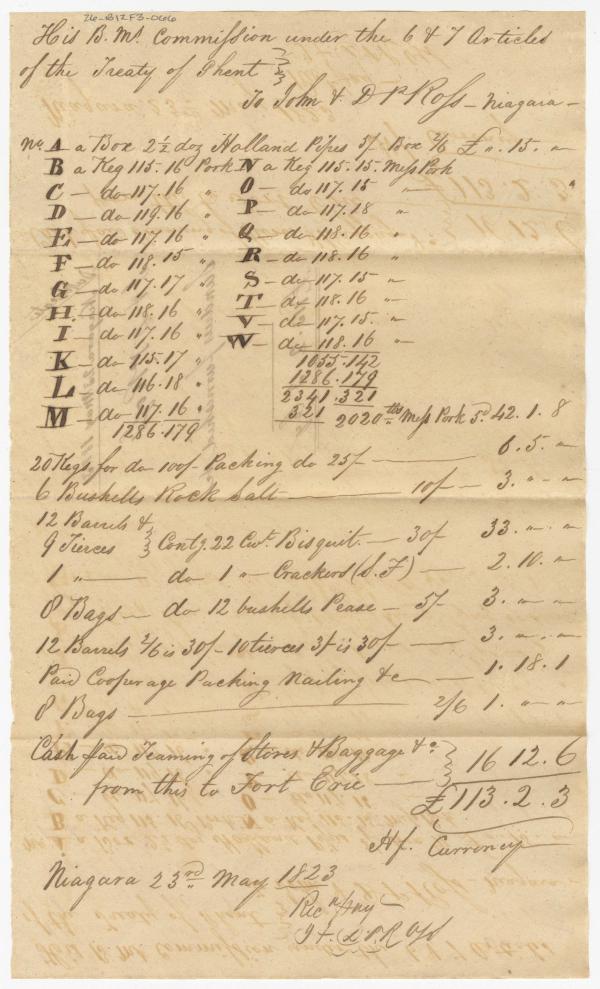 26-B12F3-066
His B. Ms. Commission under the 6 & 7 Articles
of the Treaty of Ghent
To John & D P Ross - Niagara -
No. A a Box 2 1/2 doz Holland Pipes 5/ Box 2/6 £ ". 15. "
B a Keg 115. 16 Pork N a Keg 115. 15. Mess Pork
C - do 117. 16 " O - do 117. 15 "
D - do 119. 16 " P - do 117. 18 "
E - do 117. 16 " Q - do 118. 16 "
F - do 118. 15 " R - do 118. 16 "
G - do 117. 17 " S - do 117. 15 "
H. - do 118. 16 " T - do 118. 16 "
I - do 117. 16 " V - do 117. 15. "
K - do 115. 17 " W - do 118. 16 "
1055. 142
L - do 116. 18 " 1286. 179
2341. 321
M - do 117. 16 " 321 2020 lbs Mess Pork 5d 42. 1. 8
1286. 179
20 Kegs for do 100/- Packing do 25/- 6. 5. "
6 Bushells Rock Salt 10/- 3. " "
12 Barrels &
9 Tierces Contg. 22 Cwt. Bisquit. - 30/ 33. ". "
1 " - do 1 " Crackers (S. F) - 2. 10. "
8 Bags - do 12 bushells Pease - 5/- 3. " "
12 Barrels 2/6 is 30/- 10 tierces 3/ is 30/- 3. " . "
Paid Cooperage Packing nailing &c 1. 18. 1
8 Bags 2/6 1. " "
Cash paid Teaming of Stores & Baggage &c.
from this to Fort Erie 16 12. 6
£113. 2. 3
Hf. Currency
Niagara 23rd May 1823
J & D. P. Ross